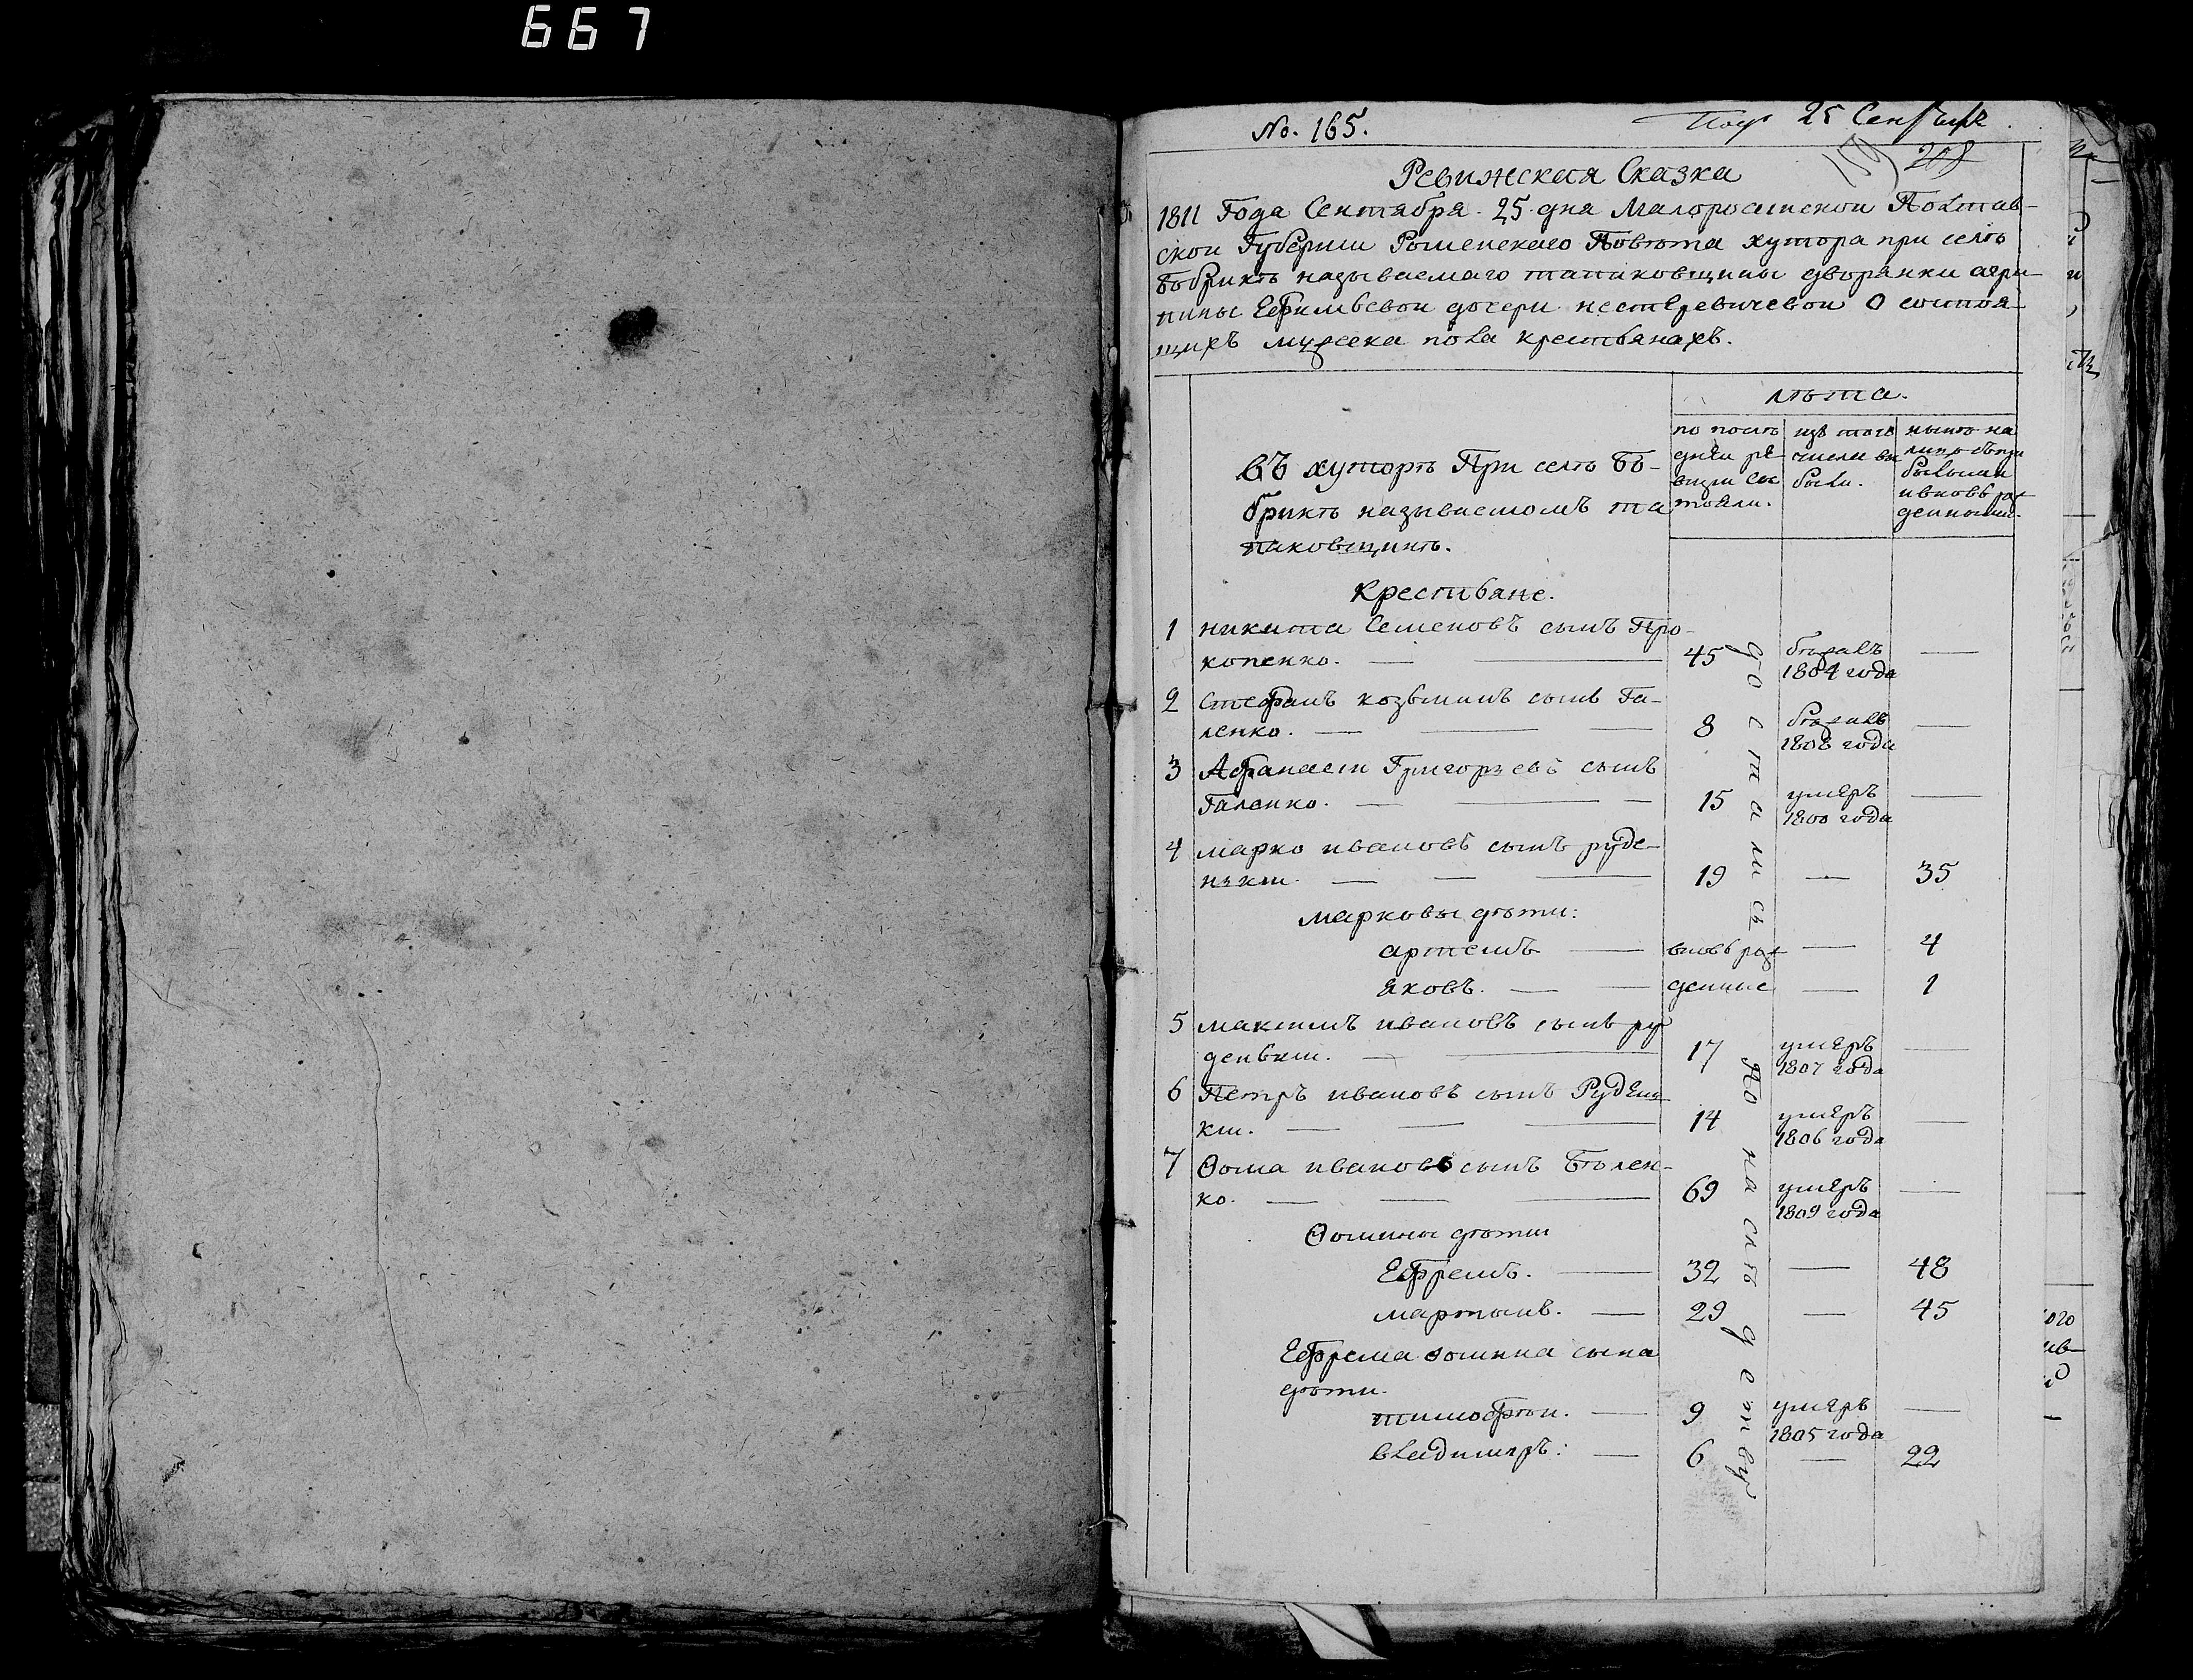 667
No. 165.
25 Сентября
19 208
Ревижская Сказка
1811 Года Сентября 25 дня Малоросiйской Полтав-
ской Губернiи Роменского Повѣта хутора при селѣ
Бобрикѣ называемаго тапаковщины дворянки агри-
пины Ефимьевой дочери нестеревичевой О состоя-
щихъ мужеска пола крестьянахъ.
лѣта.
въ хуторѣ При селѣ Бо-
брикѣ называемомъ та
паковщинѣ.
по послѣ
дней ре-
визiи сос
тояли.
изъ того
числа вы
были.
нынѣ на
лицо съ при
былыми
и вновь рож
денными.
Крестьяне.
1 никита Семеновъ сынъ Про-
копенко. 45 бѣжалъ
1804 года
2 Стефанъ козьминъ сынъ Га-
ленко. 8 бѣжалъ
1808 года
3 Афанасiй Григорьевъ сынъ
Галенко. 15 умеръ
1800 года
4 марко ивановъ сынъ руде-
нькiй. 19 — 35
марковы дѣти:
артемъ — вновь рож — 4
Яковъ. — денные — 1
5 максимъ ивановъ сынъ ру
денькiй. 17 умеръ
1807 года
6 Петръ ивановъ сынъ Рудень
кiй. 14 умеръ
1806 года
7 Ѳома ивановъ сынъ Бѣлен-
ко. 69 умеръ
1809 года
Ѳомины дѣти
Ефремъ. 32 — 48
мартынъ. 29 — 45
Ефрема ѳомина сына
дѣти.
тимофѣй. 9 умеръ
1805 года
владимеръ: 6 — 22
достались по наслѣдству